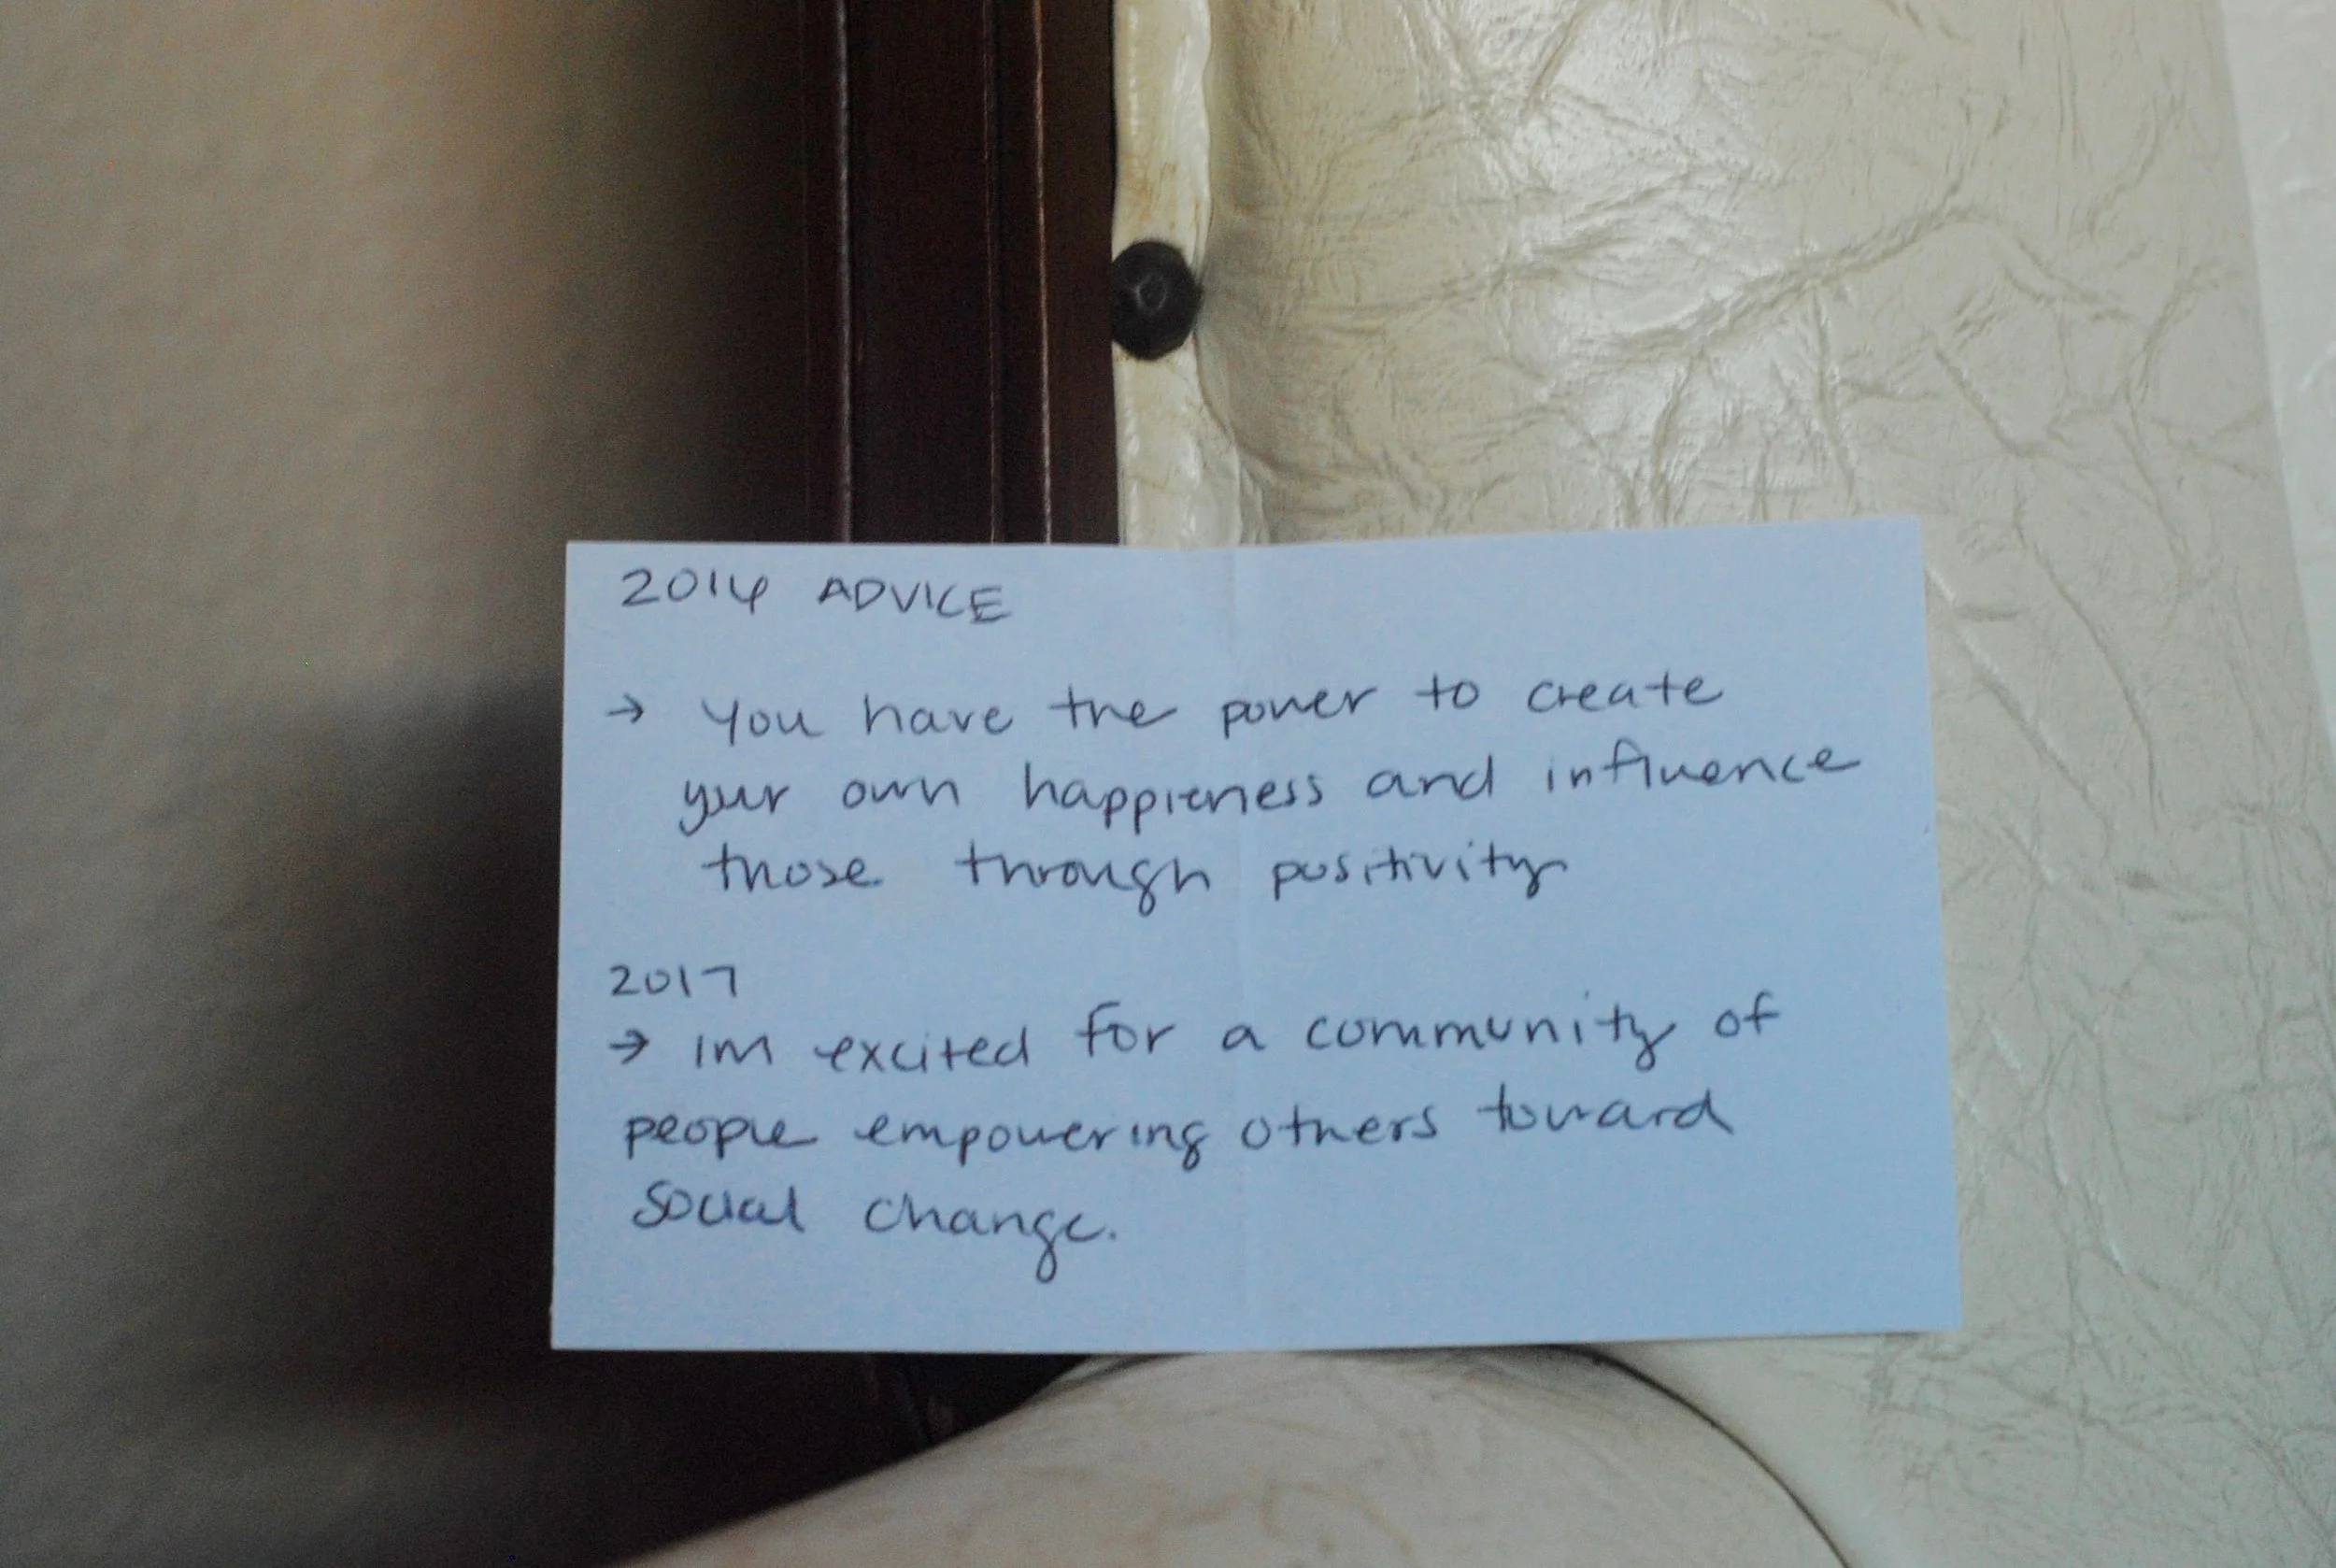 2014 ADVICE
→ You have the power to create
your own happieness and influence
those through positivity
2017
→ IM excited for a community of
people empowering others toward
social change.